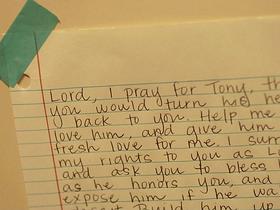 Lord, I pray for Tony, th
you would turn his he
back to you. Help me
love him, and give him
fresh love for me. I surr
my rights to you as Lo
and ask you to bless h
as he honors you, and
expose him if he wa
doesn't. Build him up